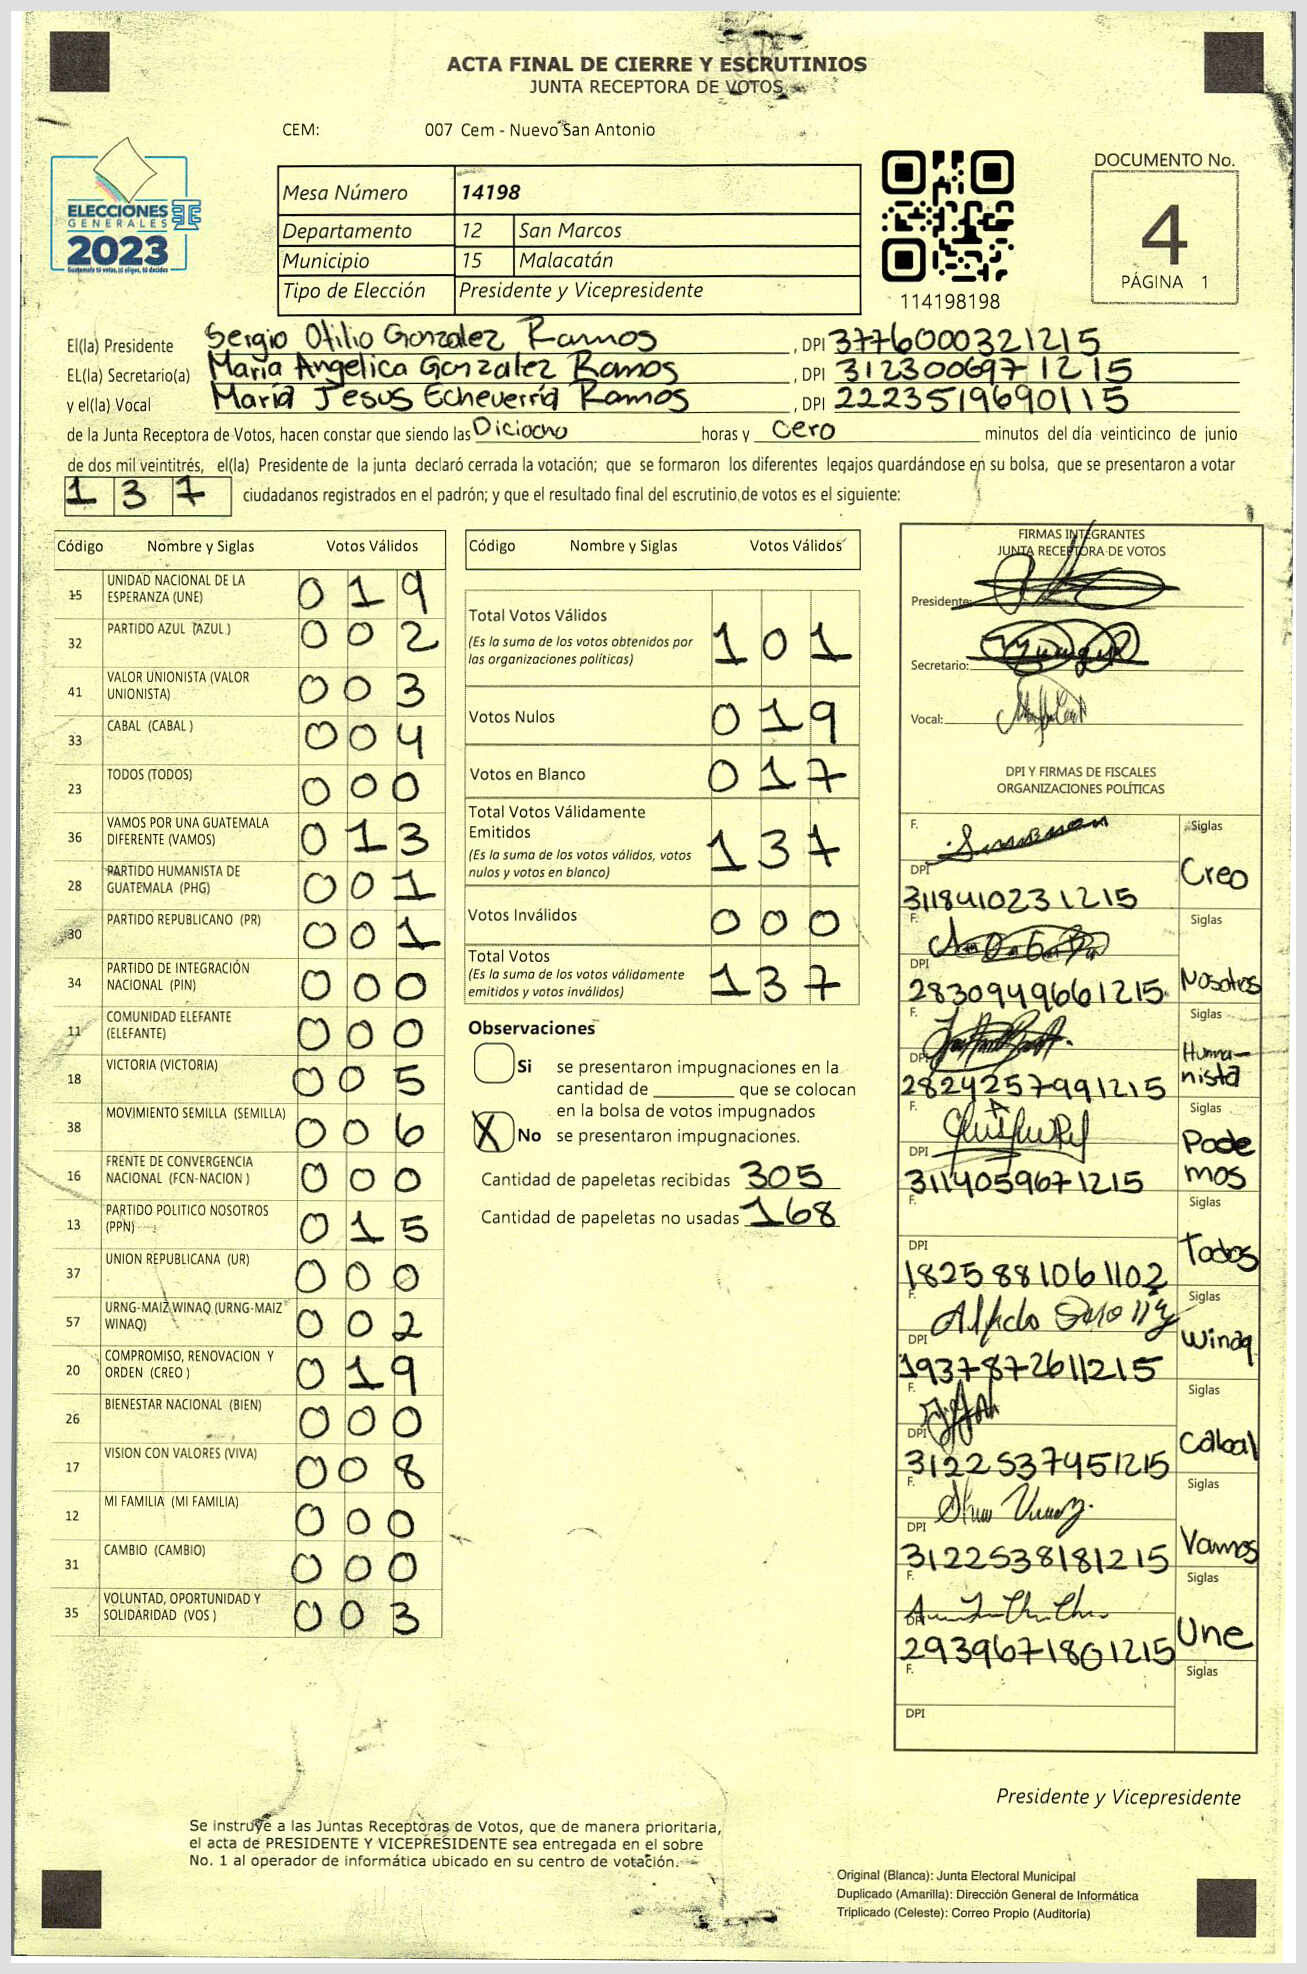 ACTA FINAL DE CIERRE Y ESCRUTINIOS
JUNTA RECEPTORA DE VOTOS
CEM: 007 Cem - Nuevo San Antonio
ELECCIONES
GENERALES
2023
Guatemala tú votas, tú eliges, tú decides
Mesa Número 14198
Departamento 12 San Marcos
Municipio 15 Malacatán
Tipo de Elección Presidente y Vicepresidente
114198198
DOCUMENTO No.
4
PÁGINA 1
El(la) Presidente Sergio Otilio Gonzalez Ramos, DPI 3776000321215
EL(la) Secretario(a) Maria Angelica Gonzalez Ramos, DPI 3123006971215
y el(la) Vocal María Jesus Echeverría Ramos, DPI 2223519690115
de la Junta Receptora de Votos, hacen constar que siendo las Diciocho horas y cero minutos del día veinticinco de junio
de dos mil veintitrés, el(la) Presidente de la junta declaró cerrada la votación; que se formaron los diferentes legajos guardándose en su bolsa, que se presentaron a votar
137 ciudadanos registrados en el padrón; y que el resultado final del escrutinio de votos es el siguiente:
Código Nombre y Siglas Votos Válidos
15 UNIDAD NACIONAL DE LA ESPERANZA (UNE) 019
32 PARTIDO AZUL (AZUL ) 002
41 VALOR UNIONISTA (VALOR UNIONISTA) 003
33 CABAL (CABAL ) 004
23 TODOS (TODOS) 000
36 VAMOS POR UNA GUATEMALA DIFERENTE (VAMOS) 013
28 PARTIDO HUMANISTA DE GUATEMALA (PHG) 001
30 PARTIDO REPUBLICANO (PR) 001
34 PARTIDO DE INTEGRACIÓN NACIONAL (PIN) 000
11 COMUNIDAD ELEFANTE (ELEFANTE) 000
18 VICTORIA (VICTORIA) 005
38 MOVIMIENTO SEMILLA (SEMILLA) 006
16 FRENTE DE CONVERGENCIA NACIONAL (FCN-NACION ) 000
13 PARTIDO POLITICO NOSOTROS (PPN) 015
37 UNION REPUBLICANA (UR) 000
57 URNG-MAIZ WINAQ (URNG-MAIZ WINAQ) 002
20 COMPROMISO, RENOVACION Y ORDEN (CREO ) 019
26 BIENESTAR NACIONAL (BIEN) 000
17 VISION CON VALORES (VIVA) 008
12 MI FAMILIA (MI FAMILIA) 000
31 CAMBIO (CAMBIO) 000
35 VOLUNTAD, OPORTUNIDAD Y SOLIDARIDAD (VOS ) 003
Código Nombre y Siglas Votos Válidos
Total Votos Válidos 101
(Es la suma de los votos obtenidos por
las organizaciones políticas)
Votos Nulos 019
Votos en Blanco 017
Total Votos Válidamente
Emitidos 137
(Es la suma de los votos válidos, votos
nulos y votos en blanco)
Votos Inválidos 000
Total Votos 137
(Es la suma de los votos válidamente
emitidos y votos inválidos)
Observaciones
Si se presentaron impugnaciones en la
cantidad de ________ que se colocan
en la bolsa de votos impugnados
X No se presentaron impugnaciones.
Cantidad de papeletas recibidas 305
Cantidad de papeletas no usadas 168
FIRMAS INTEGRANTES
JUNTA RECEPTORA DE VOTOS
Presidente:
Secretario:
Vocal:
DPI Y FIRMAS DE FISCALES
ORGANIZACIONES POLÍTICAS
F. Siglas
DPI 3118410231215 Creo
F. Siglas
DPI 2830949661215 Nosotros
F. Siglas
DPI 2824257991215 Humanista
F. Siglas
DPI 3114059671215 Podemos
F. Siglas
DPI 1825881061102 Todos
F. Alfredo Siglas
DPI 1937872611215 Winaq
F. Siglas
DPI 3122537451215 Cabal
F. Siglas
DPI 3122538181215 Vamos
F. Siglas
DPI 2939671801215 Une
F. Siglas
DPI
Presidente y Vicepresidente
Se instruye a las Juntas Receptoras de Votos, que de manera prioritaria,
el acta de PRESIDENTE Y VICEPRESIDENTE sea entregada en el sobre
No. 1 al operador de informática ubicado en su centro de votación.
Original (Blanca): Junta Electoral Municipal
Duplicado (Amarilla): Dirección General de Informática
Triplicado (Celeste): Correo Propio (Auditoría)